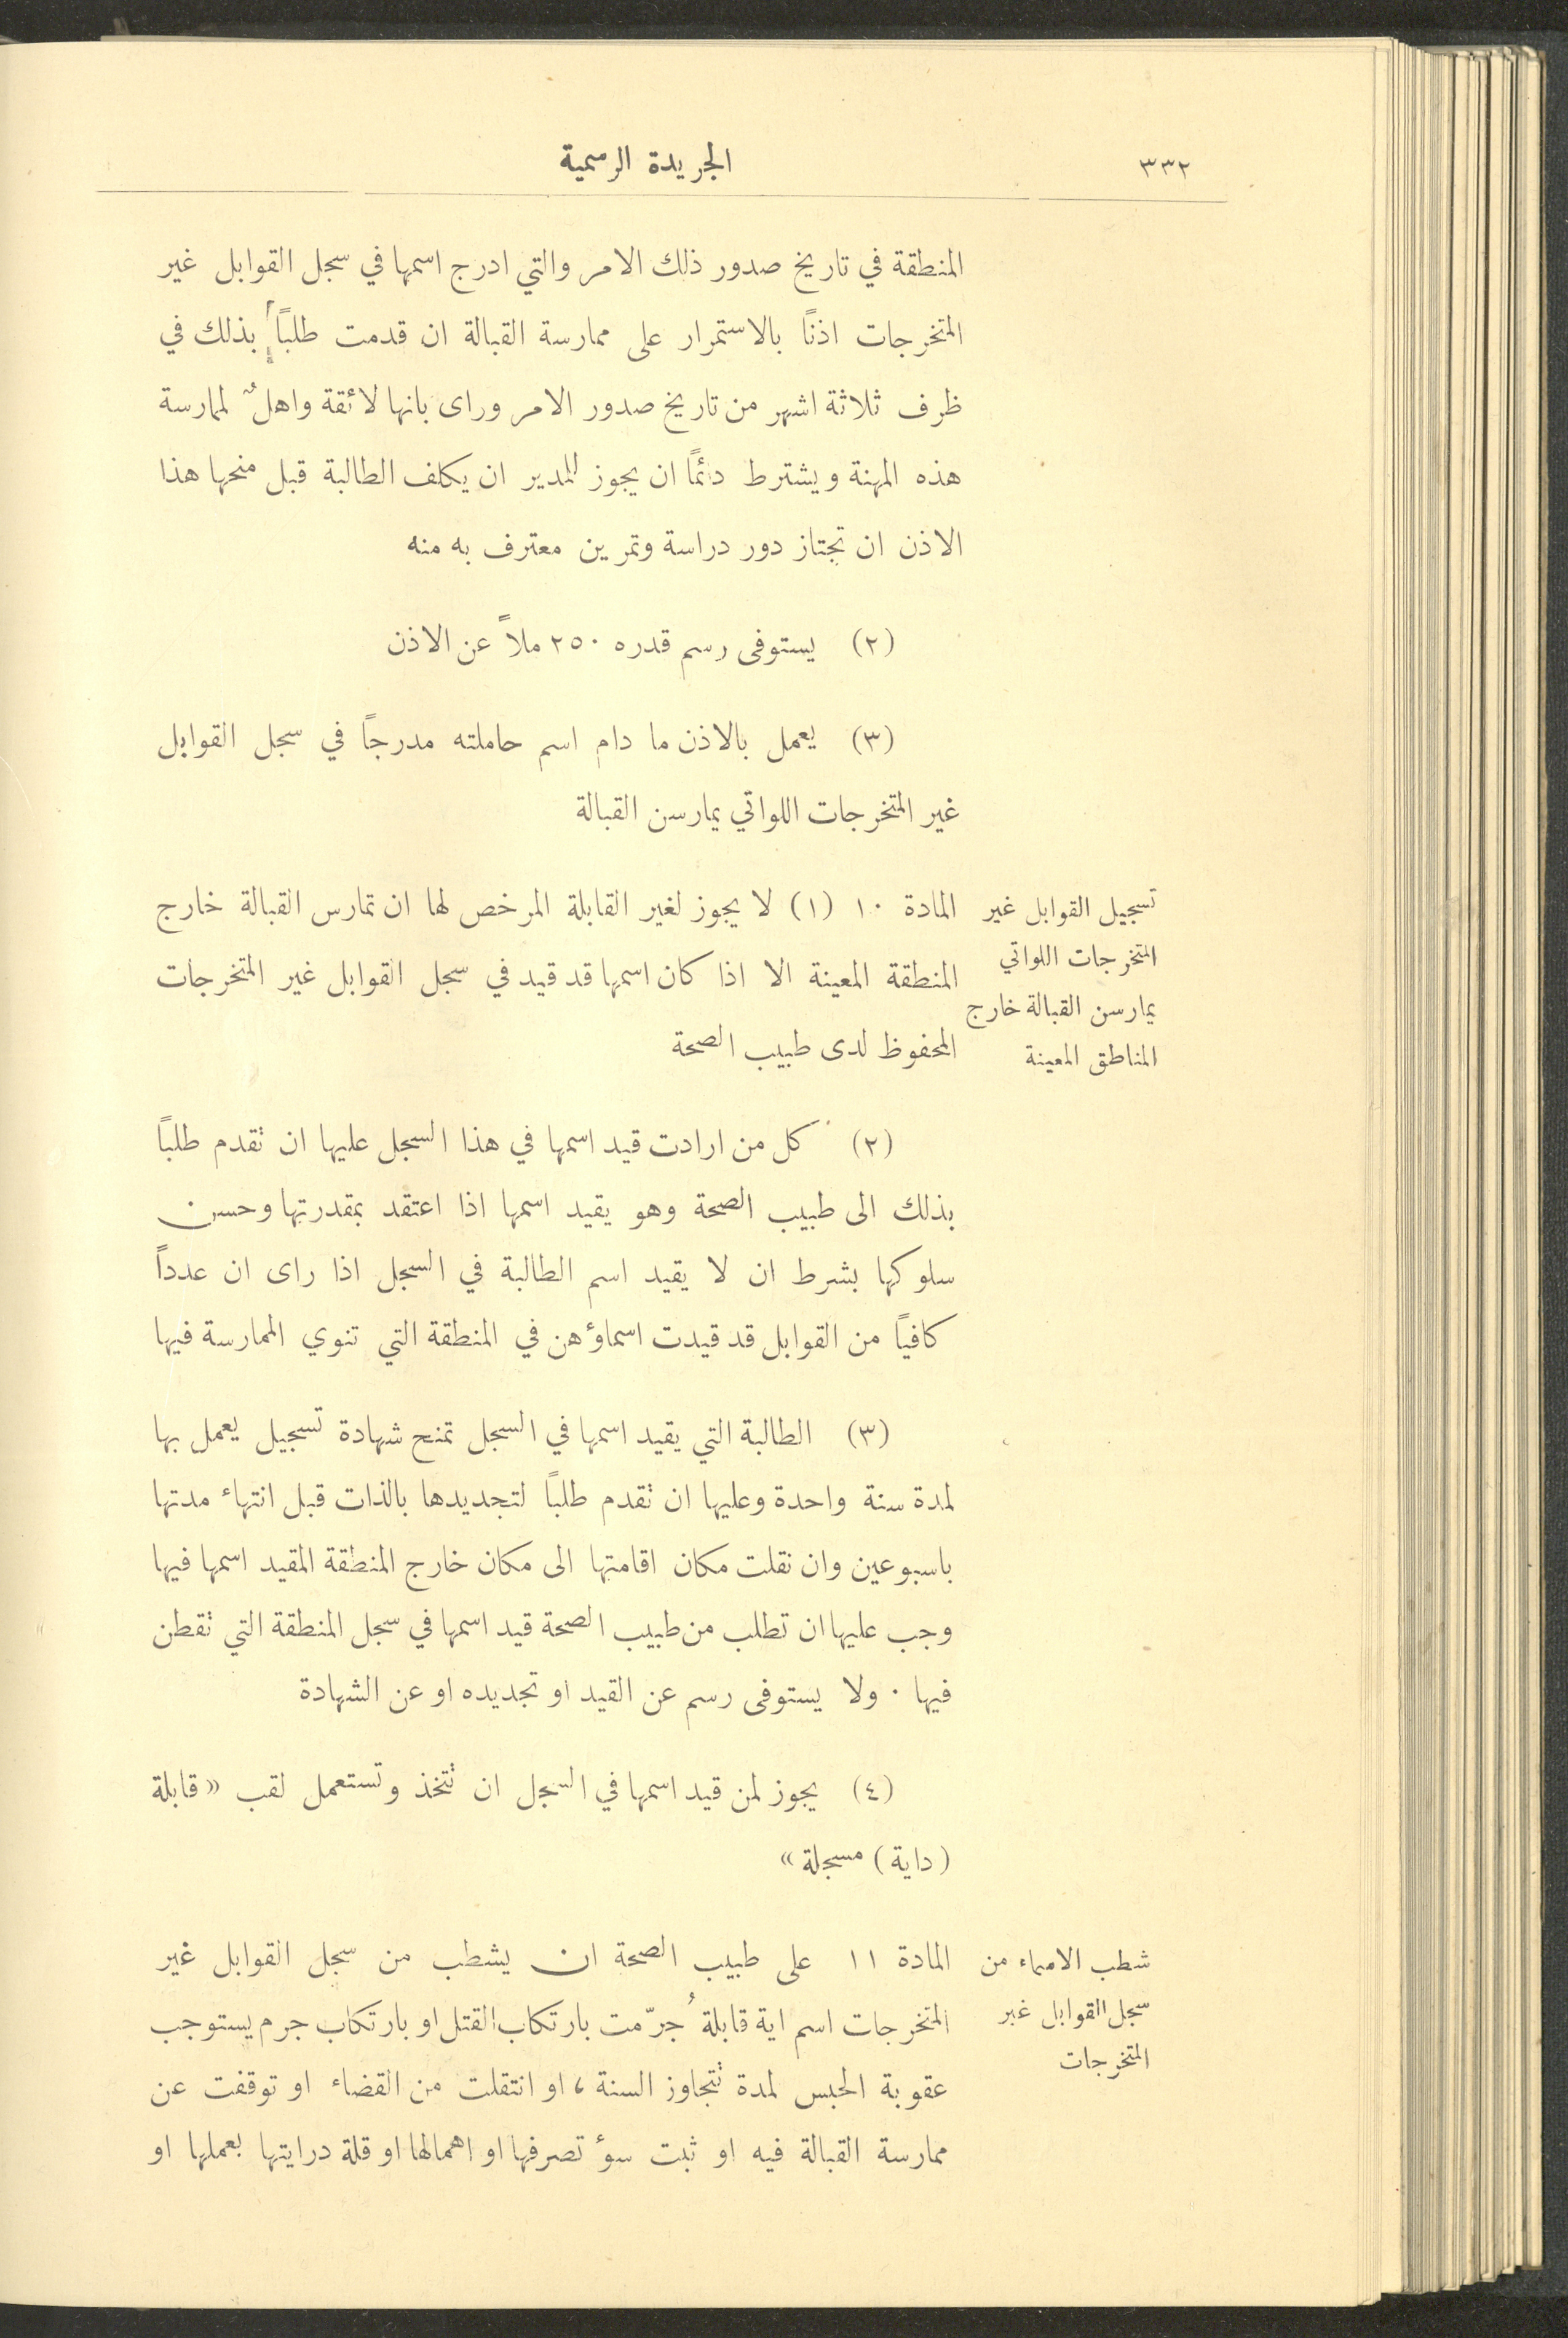 ٣٣٢
الجريدة الرسمية
المنطقة في تاريخ صدور ذلك الامر والتي ادرج اسمها في سجل القوابل غير
المتخرجات اذنًا بالاستمرار على ممارسة القبالة ان قدمت طلبًا بذلك في
ظرف ثلاثة اشهر من تاريخ صدور الامر وراى بانها لائقة واهلٌ لممارسة
هذه المهنة ويشترط دائمًا ان يجوز للمدير ان يكلف الطالبة قبل منحها هذا
الاذن ان تجتاز دور دراسة وتمرين معترف به منه
(٢) يستوفى رسم قدره ٢٥٠ ملاً عن الاذن
(٣) يعمل بالاذن ما دام اسم حاملته مدرجًا في سجل القوابل
غير المتخرجات اللواتي يمارسن القبالة
تسجيل القوابل غير
المتخرجات اللواتي
يمارسن القبالة خارج
المناطق المعينة
المادة ١٠ (١) لا يجوز لغير القابلة المرخص لها ان تمارس القبالة خارج
المنطقة المعينة الا اذا كان اسمها قد قيد في سجل القوابل غير المتخرجات
المحفوظ لدى طبيب الصحة
(٢) كل من ارادت قيد اسمها في هذا السجل عليها ان تقدم طلبًا
بذلك الى طبيب الصحة وهو يقيد اسمها اذا اعتقد بمقدرتها وحسن
سلوكها بشرط ان لا يقيد اسم الطالبة في السجل اذا راى ان عدداً
كافيًا من القوابل قد قيدت اسماؤهن في المنطقة التي تنوي الممارسة فيها
(٣) الطالبة التي يقيد اسمها في السجل تمنح شهادة تسجيل يعمل بها
لمدة سنة واحدة وعليها ان تقدم طلبًا لتجديدها بالذات قبل انتهاء مدتها
باسبوعين وان نقلت مكان اقامتها الى مكان خارج المنطقة المقيد اسمها فيها
وجب عليها ان تطلب من طبيب الصحة قيد اسمها في سجل المنطقة التي تقطن
فيها . ولا يستوفى رسم عن القيد او تجديده او عن الشهادة
(٤) يجوز لمن قيد اسمها في السجل ان تتخذ وتستعمل لقب « قابلة
(داية) مسجلة »
شطب الاسماء من
سجل القوابل غير
المتخرجات
المادة ١١ على طبيب الصحة ان يشطب من سجل القوابل غير
المتخرجات اسم اية قابلة جُرّمت بارتكاب القتل او بارتكاب جرم يستوجب
عقوبة الحبس لمدة تتجاوز السنة ، او انتقلت من القضاء او توقفت عن
ممارسة القبالة فيه او ثبت سوء تصرفها او اهمالها او قلة درايتها بعملها او